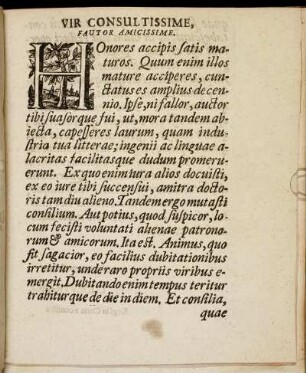 VIR CONSULTISSIME,
FAUTOR AMICISSIME.
HOnores accipis satis ma-
turos. Quum enim illos
mature acciperes, cun-
ctatus es amplius decen-
nio. Ipse, ni fallor, auctor
tibi suasorque fui, ut, mora tandem ab-
iecta, capesseres laurum, quam indu-
stria tua litterae; ingenii ac linguae a-
lacritas facilitasque dudum promeru-
erunt. Ex quo enim iura alios docuisti,
ex eo iure tibi succensui, a mitra docto-
ris tam diu alieno. Tandem ergo mutasti
consilium. Aut potius, quod suspicor, lo-
cum fecisti voluntati alienae patrono-
rum & amicorum. Ita est. Animus, quo
fit sagacior, eo facilius dubitationibus
irretitur, unde raro propriis viribus e-
mergit. Dubitando enim tempus teritur
trahiturque de die in diem. Et consilia,
quae